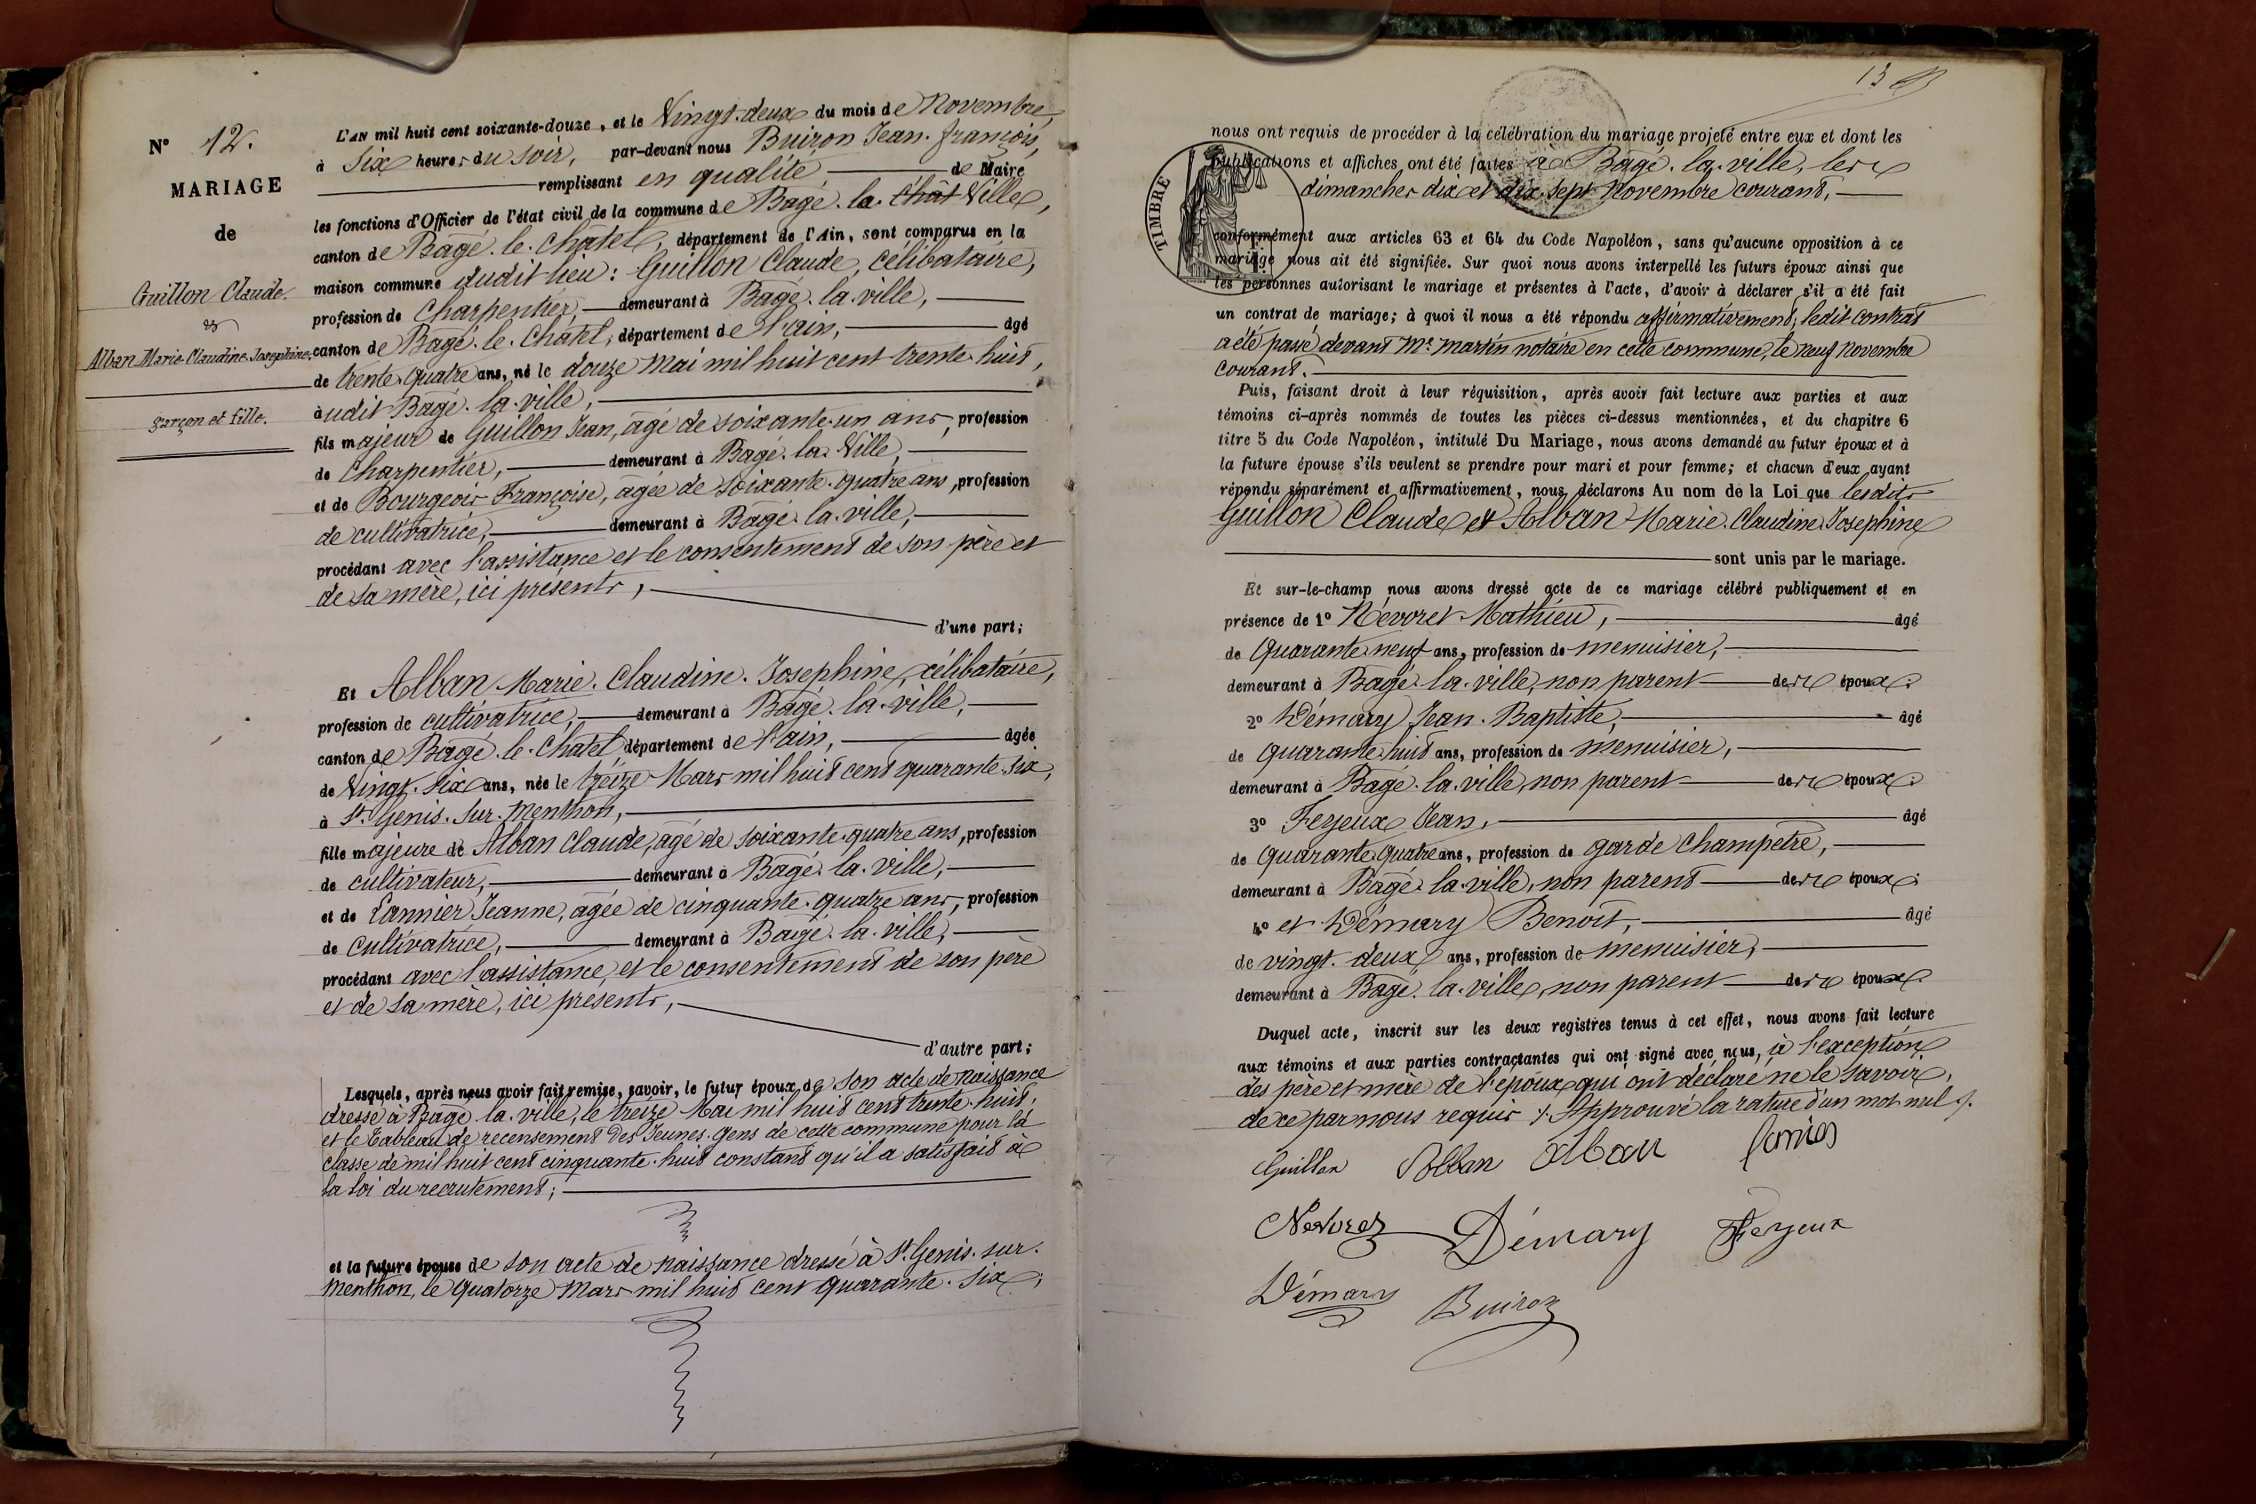 N° 12.
MARIAGE
de
Guillon Claude.
&
Alban Marie Claudine Josephine.
garçon et fille.
L'AN mil huit cent soixante-douze, et le Vingt-deux du mois de Novembre,
à Six heures du soir, par-devant nous Buiron Jean-françois,
remplissant en qualité de Maire
les fonctions d'Officier de l'état civil de la commune de Bagé-la-Chât Ville,
canton de Bagé-le-Châtel, département de l'Ain, sont comparus en la
maison commune dudit lieu : Guillon Claude, célibataire,
profession de Charpentier, demeurant à Bagé-la-ville,
canton de Bagé-le-Châtel, département de l'ain, âgé
de trente-quatre ans, né le douze Mai mil huit cent trente-huit,
àudit Bagé-la-ville,
fils majeur de Guillon Jean, âgé de soixante-un ans, profession
de Charpentier, demeurant à Bagé-la-Ville,
et de Bourgeois Françoise, âgée de soixante-quatre ans, profession
de cultivatrice, demeurant à Bagé-la-ville,
procédant avec l'assistance et le consentement de son père et
de sa mère, ici présents,
d'une part;
Et Alban Marie-Claudine-Josephine, célibataire,
profession de cultivatrice, demeurant à Bagé-la-ville,
canton de Bagé-le-Châtel département de l'ain, âgée
de Vingt-six ans, née le treize Mars mil huit cent quarante-six,
à St-Genis-sur-Menthon,
fille majeure de Alban Claude, âgé de soixante-quatre ans, profession
de cultivateur, demeurant à Bagé-la-ville,
et de Lannier Jeanne, âgée de cinquante-quatre ans, profession
de cultivatrice, demeurant à Bagé-la-ville,
procédant avec l'assistance et le consentement de son père
et de sa mère, ici présents,
d'autre part;
Lesquels, après nous avoir fait remise, savoir, le futur époux de son acte de naissance
dressé à Bagé-la-ville, le treize Mai mil huit cent trente-huit,
et le Tableau de recensement des Jeunes-Gens de cette commune pour la
classe de mil huit cent cinquante-huit constant qu'il a satisfait à
la loi du recrutement;
et la future épouse de son acte de naissance dressé à St-Genis-sur-
Menthon, le Quatorze Mars mil huit cent quarante-six;
13
TIMBRE
nous ont requis de procéder à la célébration du mariage projeté entre eux et dont les
publications et affiches ont été faites à Bagé-la-ville, les
dimanches dix et dix-sept Novembre courant,
conformément aux articles 63 et 64 du Code Napoléon, sans qu'aucune opposition à ce
mariage nous ait été signifiée. Sur quoi nous avons interpellé les futurs époux ainsi que
les personnes autorisant le mariage et présentes à l'acte, d'avoir à déclarer s'il a été fait
un contrat de mariage; à quoi il nous a été répondu affirmativement, ledit contrat
a été passé devant Me Martin notaire en cette commune, le neuf Novembre
courant.
Puis, faisant droit à leur réquisition, après avoir fait lecture aux parties et aux
témoins ci-après nommés de toutes les pièces ci-dessus mentionnées, et du chapitre 6
titre 5 du Code Napoléon, intitulé Du Mariage, nous avons demandé au futur époux et à
la future épouse s'ils veulent se prendre pour mari et pour femme; et chacun d'eux ayant
répondu séparément et affirmativement, nous déclarons Au nom de la Loi que lesdits
Guillon Claude et Alban Marie-Claudine Josephine
sont unis par le mariage.
Et sur-le-champ nous avons dressé acte de ce mariage célébré publiquement et en
présence de 1° Névoret Mathieu, âgé
de Quarante-neuf ans, profession de menuisier,
demeurant à Bagé-la-ville, non parent des époux;
2° Démary Jean-Baptiste, âgé
de quarante-huit ans, profession de menuisier,
demeurant à Bagé-la-ville, non parent des époux;
3° Feyeux Jean, âgé
de Quarante-quatre ans, profession de garde champêtre,
demeurant à Bagé-la-ville, non parent des époux;
4° et Démary Benoit, âgé
de vingt-deux ans, profession de menuisier,
demeurant à Bagé-la-ville, non parent des époux.
Duquel acte, inscrit sur les deux registres tenus à cet effet, nous avons fait lecture
aux témoins et aux parties contractantes qui ont signé avec nous, à l'exception
des père et mère de l'époux qui ont déclaré ne le savoir,
de ce par nous requis ./. Approuvé la rature d'un mot nul ./.
Guillon Alban Alban
Nevoret Démary Feyeux
Démary Buiron